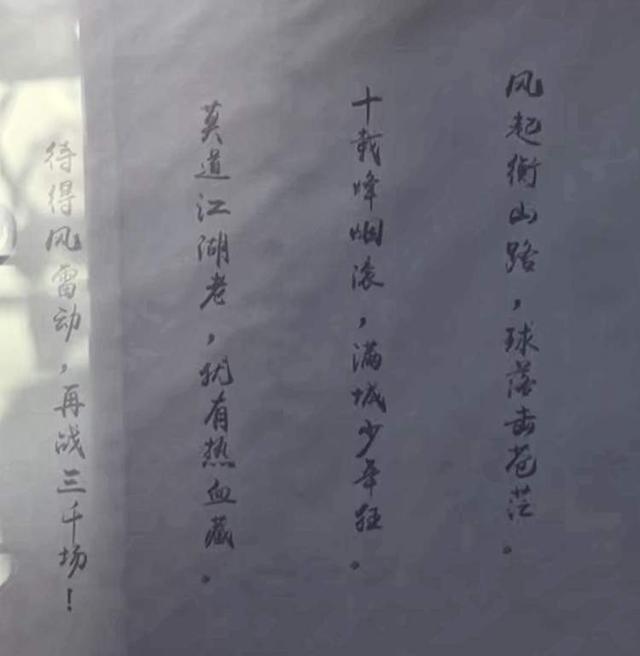 风起衡山路，球落击苍茫。
十载烽烟滚，满城少年狂。
莫道江湖老，犹有热血藏。
待得风雷动，再战三千场！